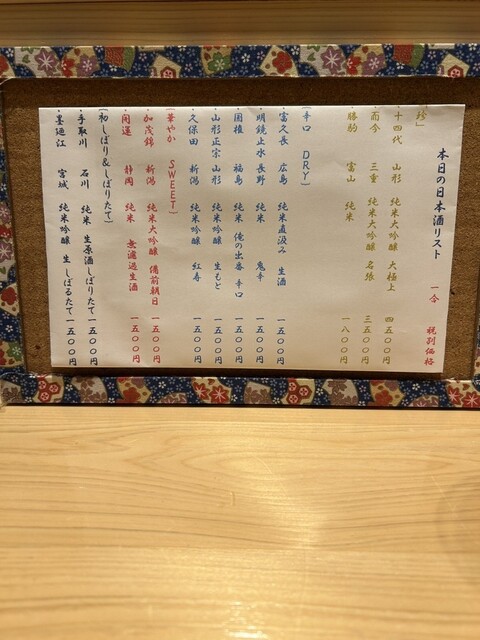 本日の日本酒リスト
一合 税別価格
珍」
・十四代 山形 純米大吟醸 大極上 四五〇〇円
・而今 三重 純米大吟醸 名張 三五〇〇円
・勝駒 富山 純米 一八〇〇円
(辛口 DRY)
・富久長 広島 純米直汲み 生酒 一五〇〇円
・明鏡止水 長野 純米 鬼辛 一五〇〇円
・国権 福島 純米 俺の出番 辛口 一五〇〇円
・山形正宗 山形 純米吟醸 生もと 一五〇〇円
・久保田 新潟 純米吟醸 紅寿 一五〇〇円
(華やか SWEET)
・加茂錦 新潟 純米大吟醸 備前朝日 一五〇〇円
・開運 静岡 純米 無濾過生酒 一五〇〇円
(初しぼり&しぼりたて)
・手取川 石川 純米 生原酒しぼりたて 一五〇〇円
・墨廼江 宮城 純米吟醸 生 しぼるたて 一五〇〇円